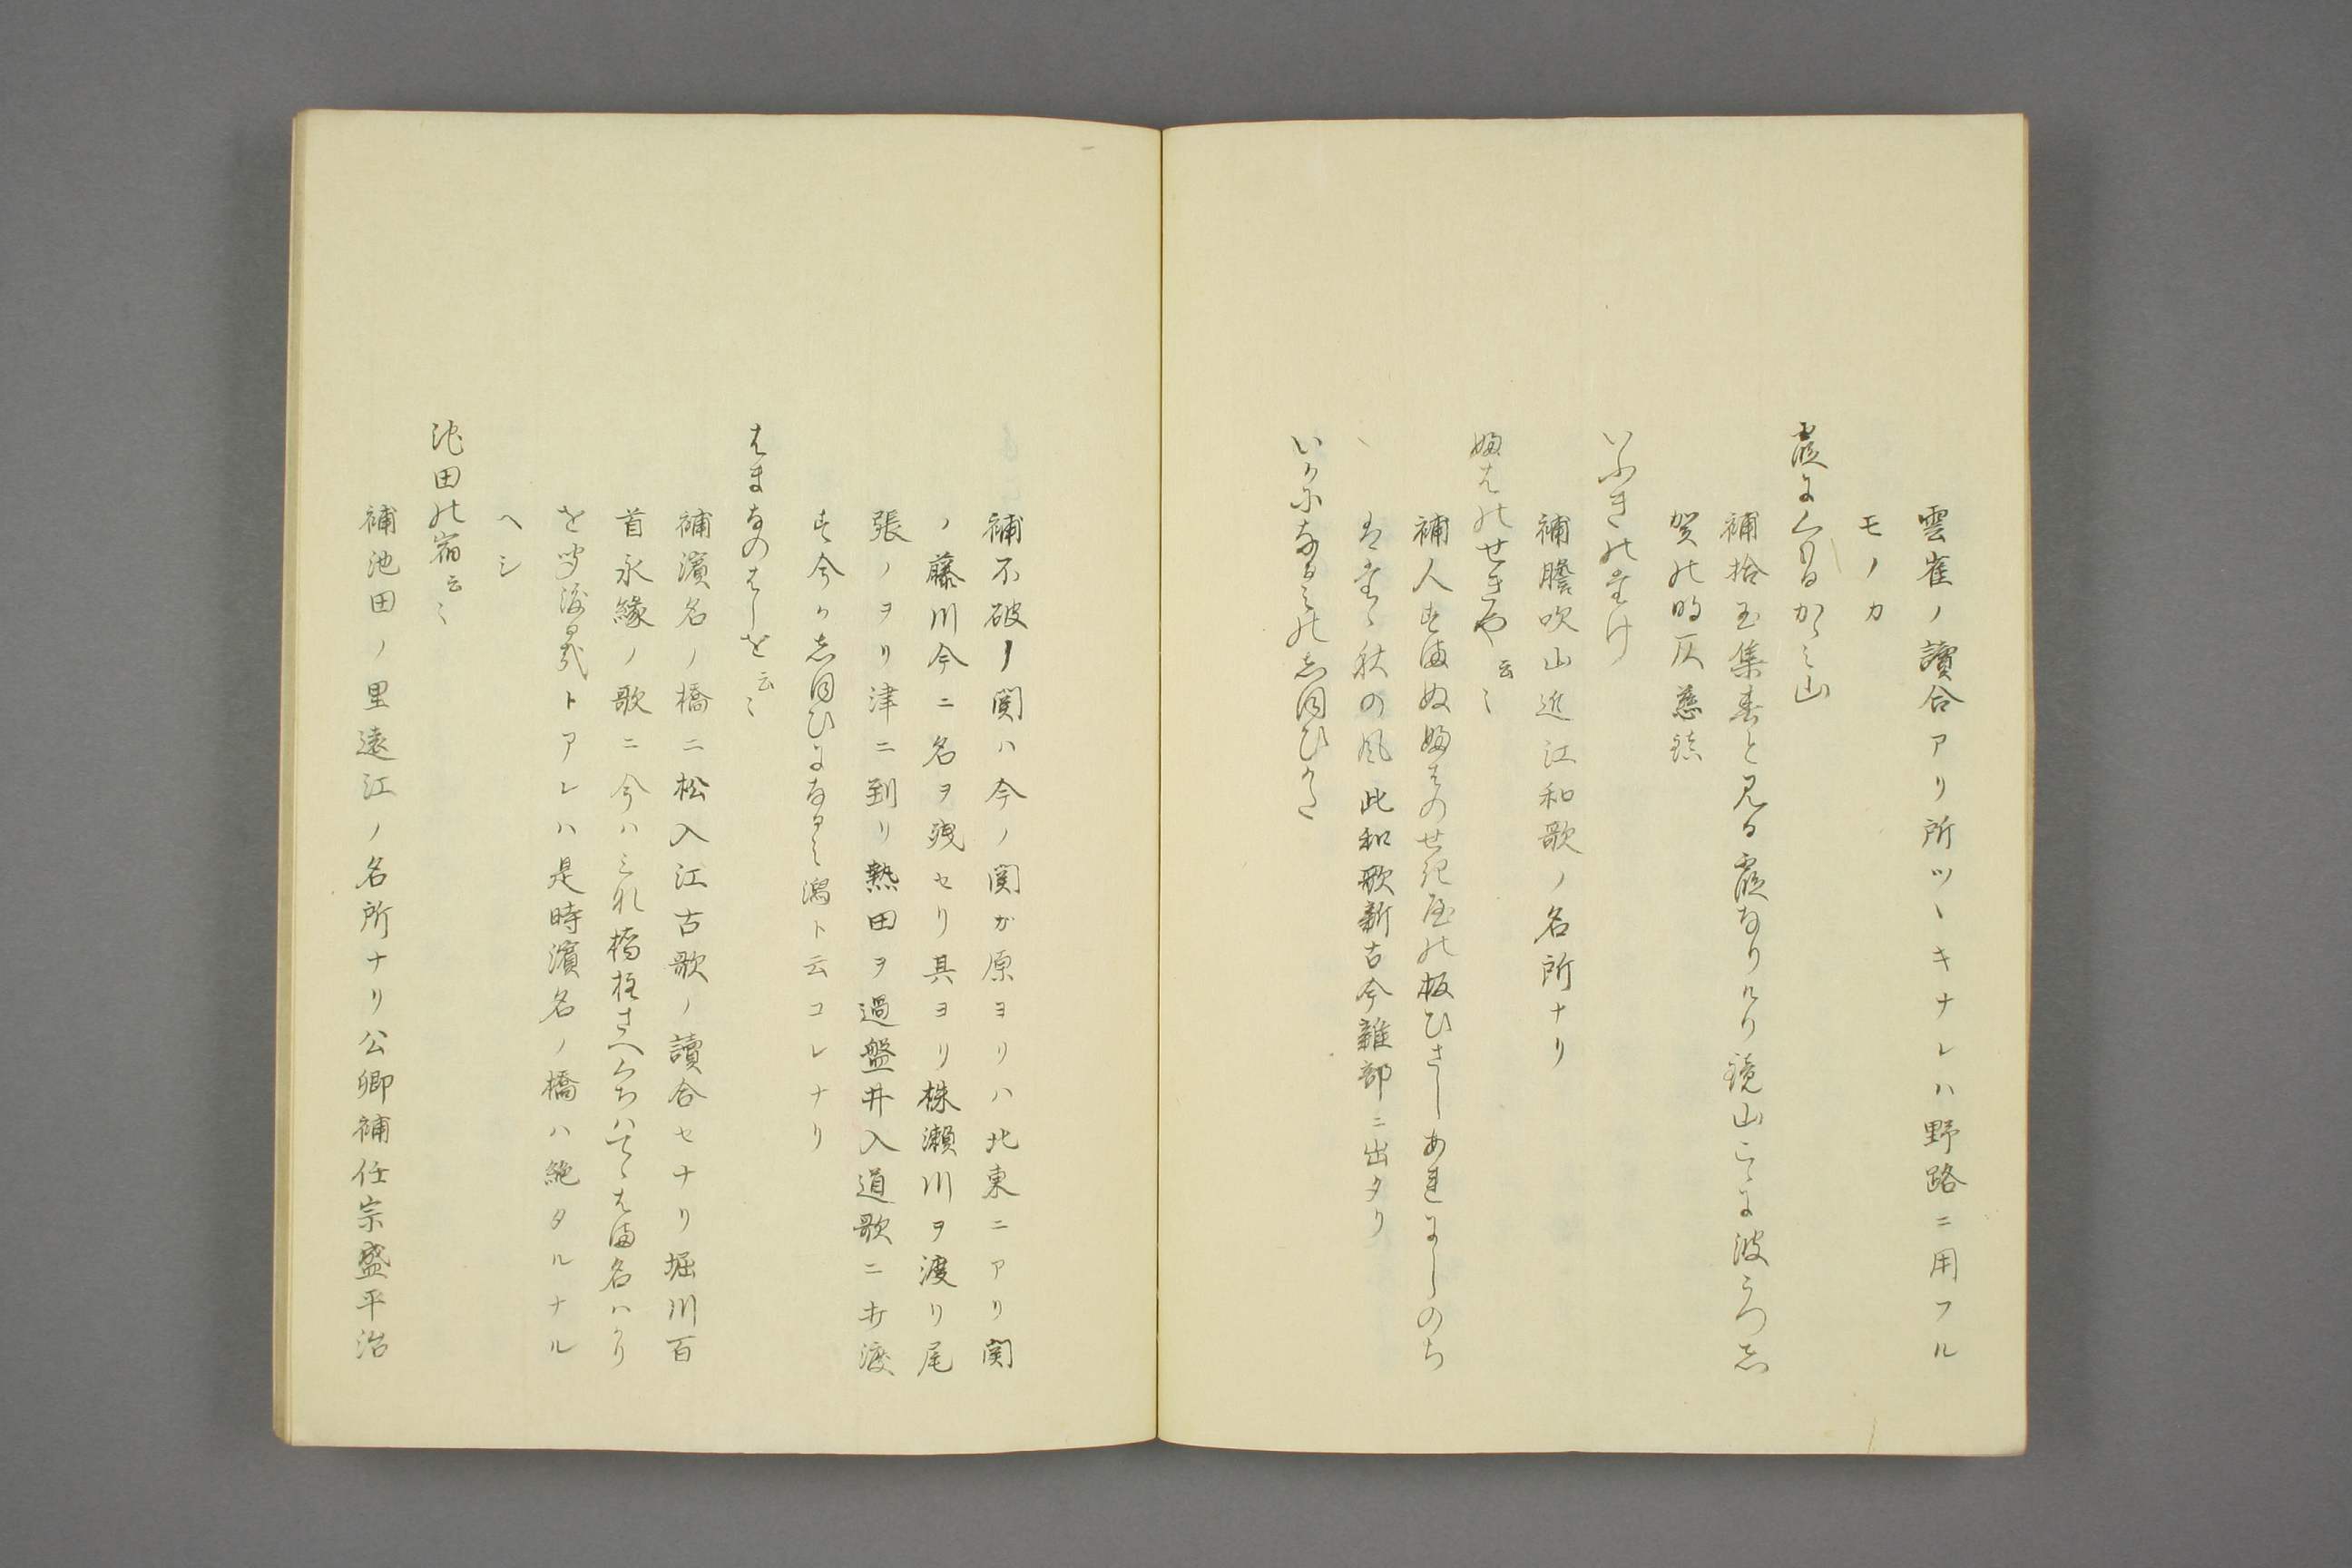 雲雀ノ讀合アリ所ツヽキナレハ野路ニ用フル
モノカ
霞にくもるかゝみ山
補拾玉集春と見る霞なりけり鏡山こゝに波うつ志
賀の明仄慈鎮
いふきのたけ
補膽吹山近江和歌ノ名所ナリ
婦はのせきや云〻
補人すまぬ婦はのせ紀屋の板ひさしあれにしのち
はたゝ秋の風此和歌新古今雜部ニ出タリ
いかになるみの志ほひかた
補不破ノ関ハ今ノ関か原ヨリハ北東ニアリ関
ノ藤川今ニ名ヲ残セリ其ヨリ株瀬川ヲ渡リ尾
張ノヲリ津ニ到リ熱田ヲ過盤井入道歌ニ打渡
す今か志ほひになるみ潟ト云コレナリ
はまなのはしを云〻
補濱名ノ橋ニ松入江古歌ノ讀合セナリ堀川百
首永縁ノ歌ニ今ハみれ橋柱さへくちハてゝはま名ハかり
を聞渡る哉トアレハ是時濱名ノ橋ハ絶タルナル
ヘシ
池田の宿云〻
補池田ノ里遠江ノ名所ナリ公卿補任宗盛平治